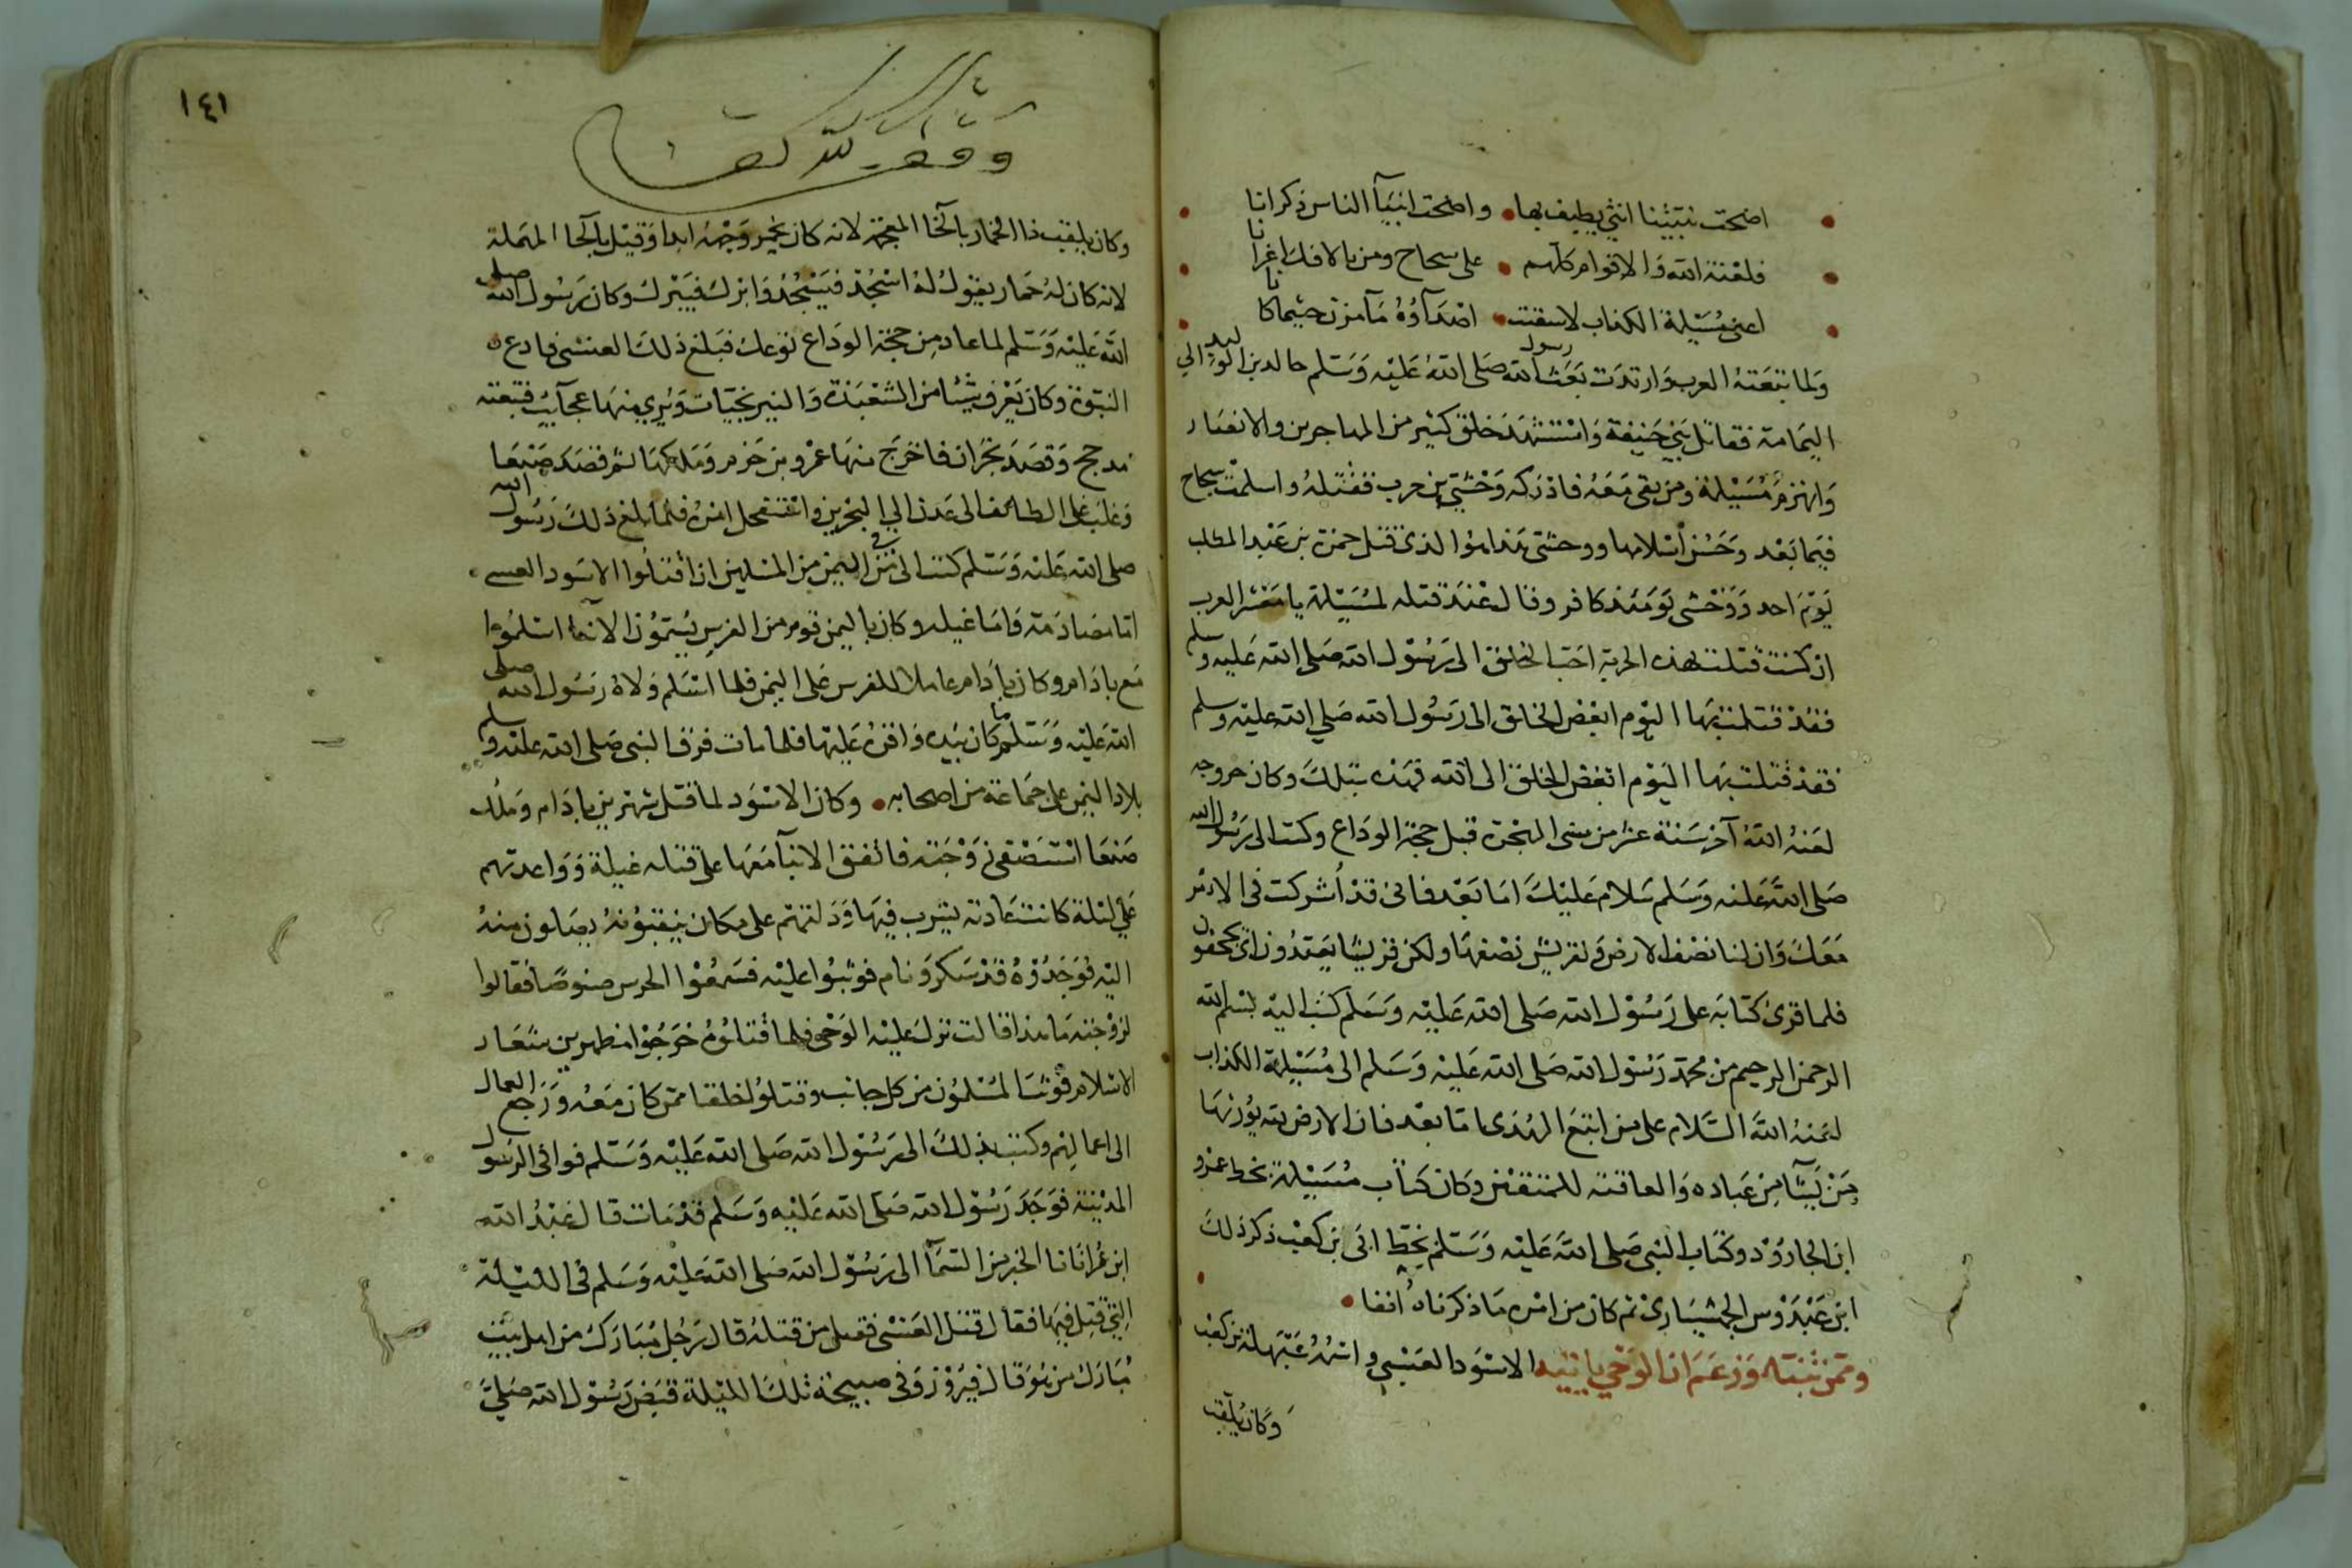 اضحت نبيئنا انثى يطيف بها • واضحت انبيآ الناس ذكرانا
فلعنة الله والاقوام كلهم • على سجاح ومن بالافك اغرانا
اعني مسيلمة الكذاب لاسقيت • اصدآؤه مآ مزن حيثما كانا
ولما تبعته العرب وارتدت بعث رسول الله صلى الله عليه وسلم خالد بن الوليد الي
اليمامة فقاتل بني حنيفة واستشهد خلق كثير من المهاجرين والانصار
وانهزم مسيلمة ومن بقى معه فادركه وحشي بن حرب فقتله واسلمت سجاح
فيما بعد وحسن اسلامها ووحشي هذا هو الذي قتل حمزة بن عبد المطلب
يوم احد ووحشي يومئذ كافر وقال عند قتله لمسيلمة يا معشر العرب
ان كنت قتلت بهذه الحربة احب الخلق الى رسول الله صلى الله عليه وسلم
فقد قتلت بها اليوم ابغض الخلق الى رسول الله صلي الله عليه وسلم
فقد قتلت بها اليوم ابغض الخلق الى الله فهذه بتلك وكان خروجه
لعنه الله آخر سنة عشر من سني الهجرة قبل حجة الوداع وكتب الى رسول الله
صلى الله عليه وسلم سلام عليك اما بعد فاني قد أشركت في الامر
معك وان لنا نصف الارض ولقريش نصفها ولكن قريشا يعتدون اي يجحفون
فلما قرئ كتابه على رسول الله صلى الله عليه وسلم كتب اليه بسم الله
الرحمن الرحيم من محمد رسول الله صلى الله عليه وسلم الى مسيلمة الكذاب
لعنه الله السلام على من اتبع الهدى اما بعد فان الارض لله يورثها
من يشآ من عباده والعاقبة للمتقين وكان كتاب مسيلمة بخط عمرو
ابن الجارود وكتاب النبي صلى الله عليه وسلم بخط ابي بن كعب ذكر ذلك
ابن عبدوس الجهشياري ثم كان من امره ما ذكرناه أنفا •
وممن تنبأ وزعم ان الوحي ياتيه الاسود العنسي واسمه عبهلة بن كعب
وكان يلقب
١٤١
وقف لله تعالى
وكان يلقب ذا الخمار بالخا المعجمة لانه كان يخمر وجهه ابدا وقيل بالحا المهملة
لانه كان له حمار يقول له اسجد فيسجد وابرك فيبرك وكان رسول الله صلى
الله عليه وسلم لما عاد من حجة الوداع توعك فبلغ ذلك العنسي فادعى
النبوة وكان يعرف شيئا من الشعبذة والنيرنجيات ويري منها عجآيب فتبعته
مدحج وقصد نجران فاخرج منها عمرو بن حزم وملكها ثم قصد صنعا
وغلب على الطائف الى عدن الي البحرين واستفحل امره فلما بلغ ذلك رسول الله
صلى الله عليه وسلم كتب الى من في اليمن من المسلمين ان اقتلوا الاسود العنسي
اما مصادمة واما غيلة وكان باليمن قوم من الفرس يسمون الابنآ اسلموا
مع باذام وكان باذام عاملا للفرس على اليمن فلما اسلم ولاه رسول الله صلى
الله عليه وسلم ما كان بيده واقره عليها فلما مات فرق النبي صلى الله عليه وسلم
بلاد اليمن على جماعة من اصحابه • وكان الاسود لما قتل شهر بن باذام وملك
صنعا استصفى زوجته فاتفق الابنآ معها على قتله غيلة وواعدتهم
علي ليلة كانت عادته يشرب فيها ودلتهم على مكان ينقبونه يصلون منه
اليه فوجدوه قد سكر ونام فوثبوا عليه فسمعوا الحرس صوتا فقالوا
لزوجته ما هذا قالت نزل عليه الوحي فلما قتلوه خرجوا مظهرين شعار
الاسلام فوثب المسلمون من كل جانب وقتلوا خلقا ممن كان معه ورجع العمال
الى اعمالهم وكتب بذلك الى رسول الله صلى الله عليه وسلم فوافى الرسول
المدينة فوجد رسول الله صلى الله عليه وسلم قد مات قال عبد الله
ابن عمر اتانا الخبر من السمآ الى رسول الله صلى الله عليه وسلم في الليلة
التي قتل فيها فقال قتل العنسي فقيل من قتله قال رجل مبارك من اهل بيت
مبارك من هو قال فيروز وفي صبيحة تلك الليلة قبض رسول الله صلى